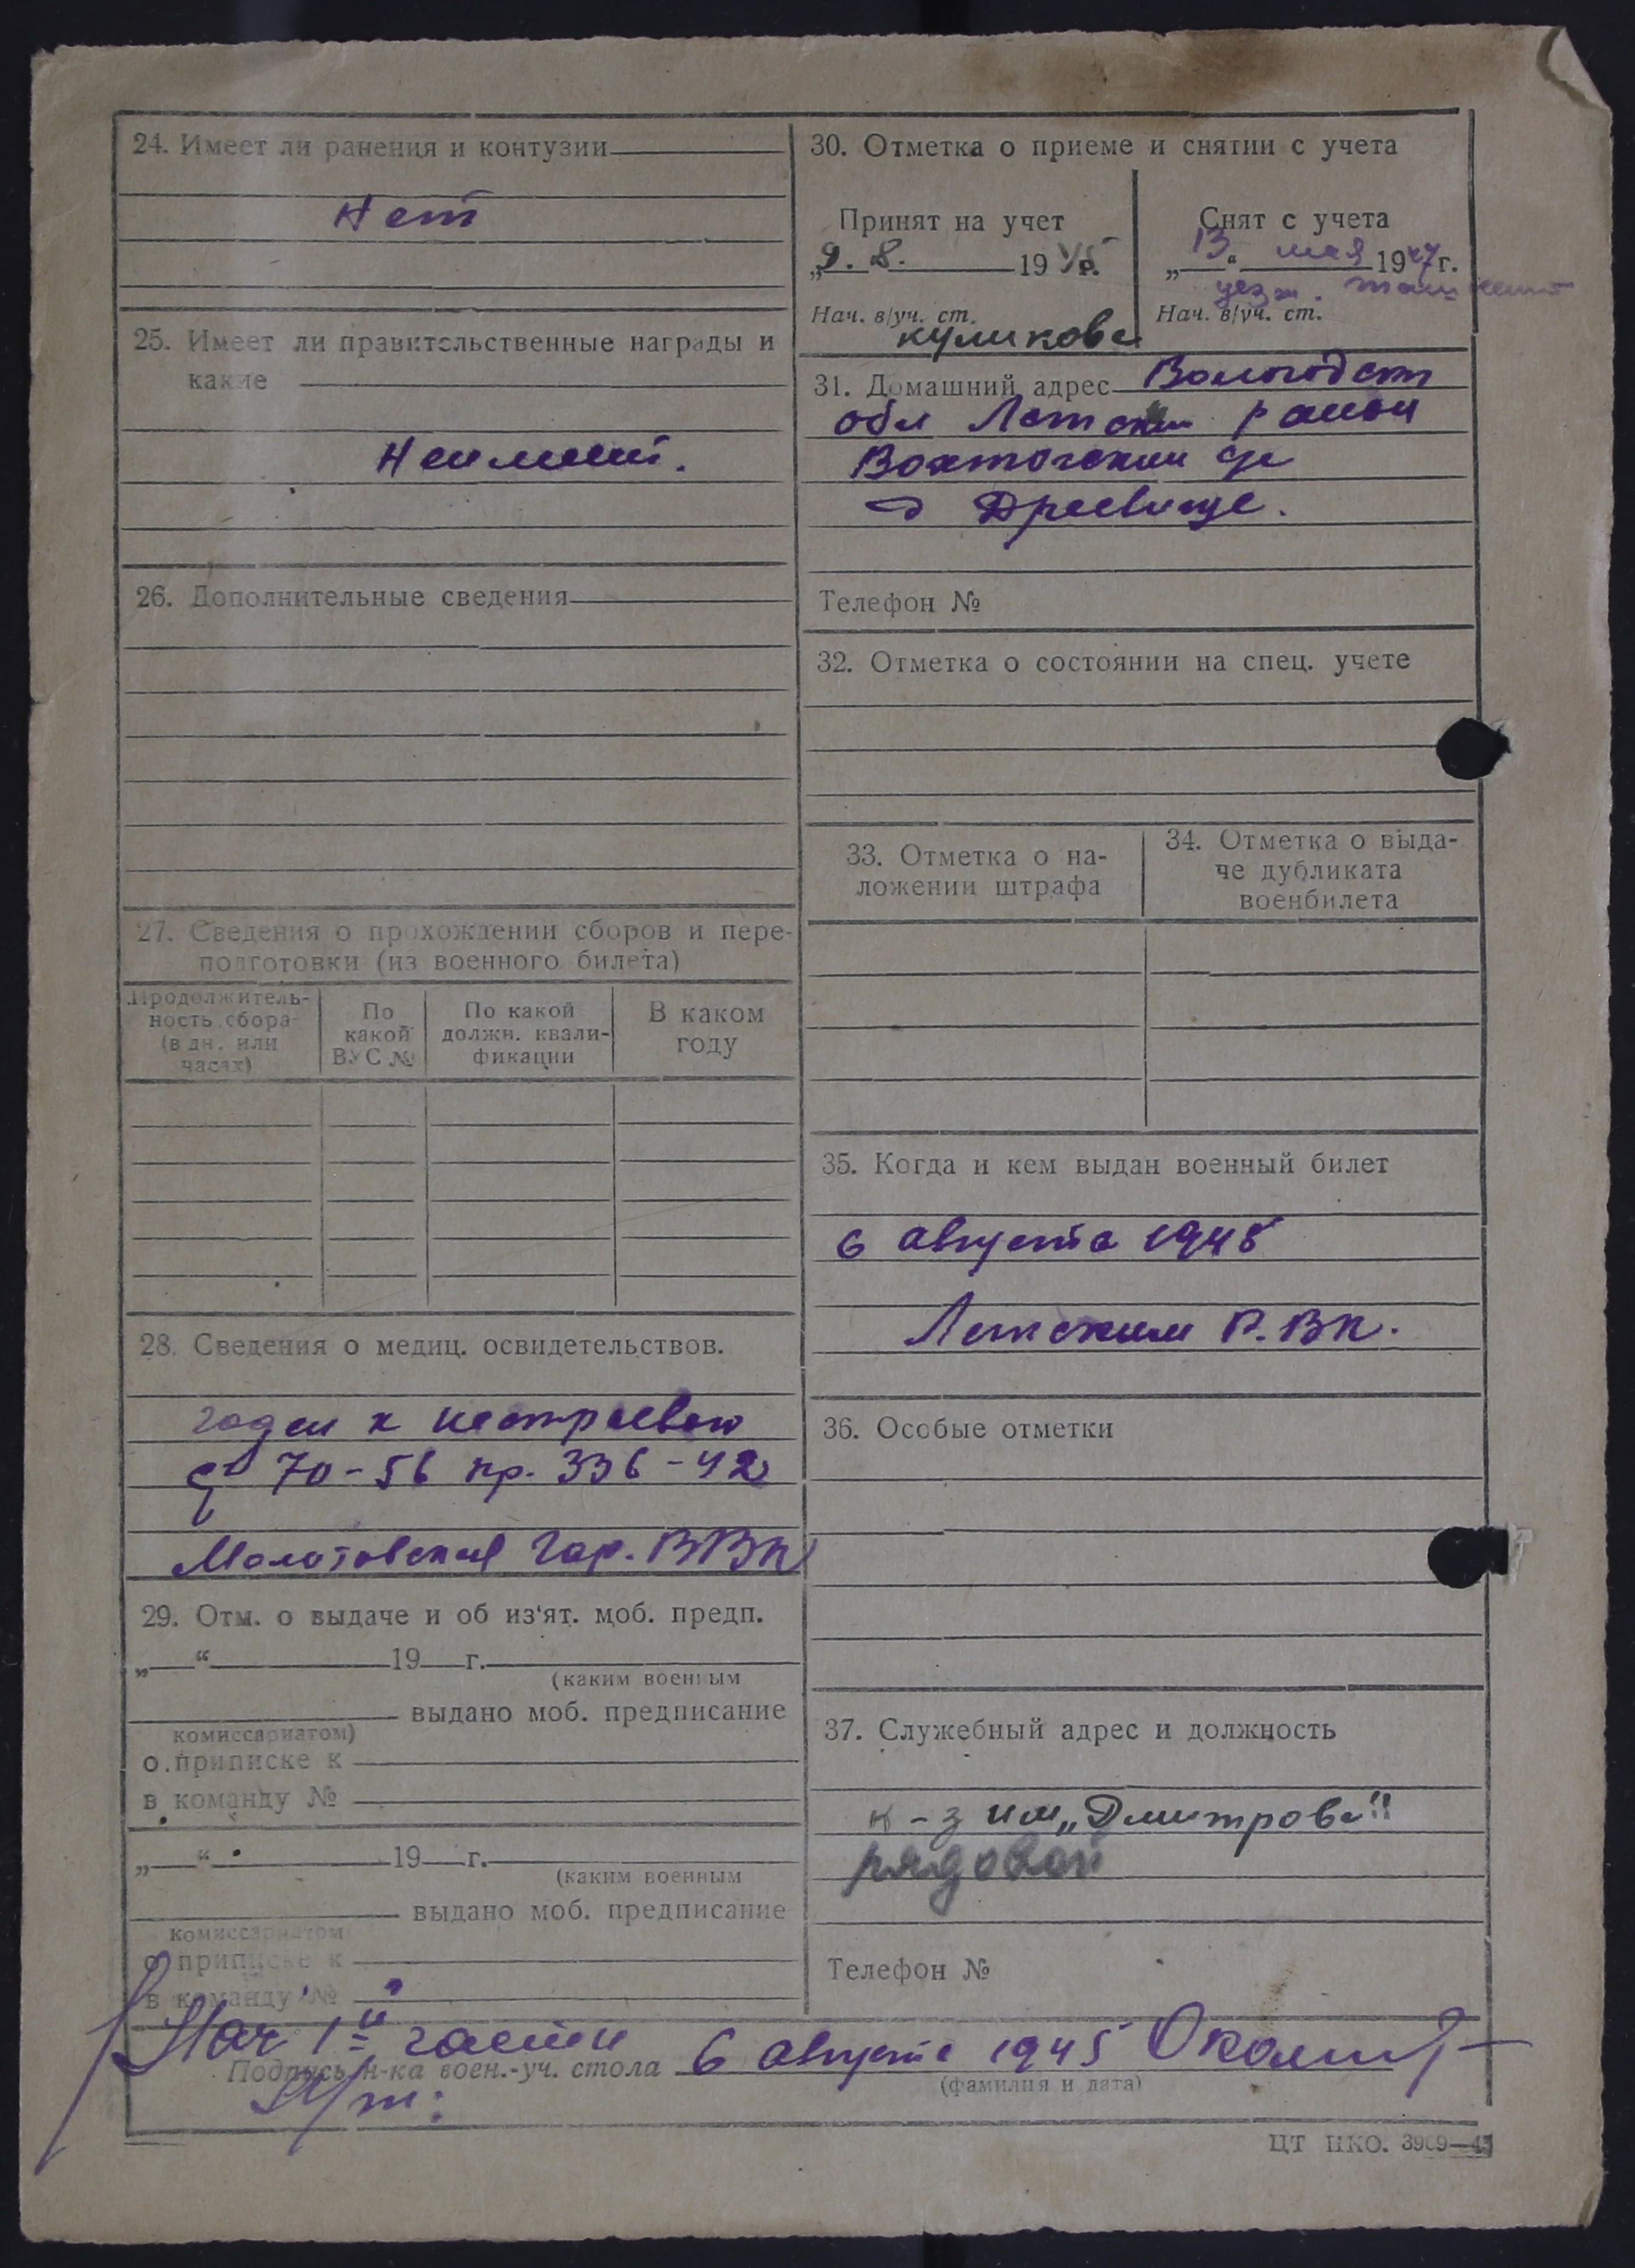 24. Имеет ли ранения и контузии
Нет
25. Имеет ли правительственные награды и
какие
Неимеет.
26. Дополнительные сведения
27. Сведения о прохождении сборов и пере-
подготовки (из военного билета)
Продолжитель-
ность сбора
(в дн. или
часах)
По
какой
ВУС №
По какой
должн. квали-
фикации
В каком
году
28. Сведения о медиц. освидетельствов.
годен к нестроевой
70-56 пр. 336-42
Молотовская Гар. ВВК
29. Отм. о выдаче и об из‘ят. моб. предп.
„ “ 19 г.
(каким военным
выдано моб. предписание
комиссариатом)
о приписке к
в команду №
„ “ 19 г.
(каким военным
выдано моб. предписание
комиссариатом
о приписке к
в команду №
30. Отметка о приеме и снятии с учета
Принят на учет
„9. 8. 1945г.
Нач. в/уч. ст.
куликова
Снят с учета
„13“ мая 1947г.
Нач. в/уч. ст.
31. Домашний адрес Вологодск
обл район
Вохтогский с/с
д Древище.
Телефон №
32. Отметка о состоянии на спец. учете
33. Отметка о на-
ложении штрафа
34. Отметка о выда-
че дубликата
военбилета
35. Когда и кем выдан военный билет
6 августа 1945
Р.ВК.
36. Особые отметки
37. Служебный адрес и должность
к-з им „Дмитрова"
рядовой
Телефон №
Нач 1й части 6 августа 1945
Подпись н-ка воен.-уч. стола
(фамилия и дата)
ЦТ НКО. 3909—45